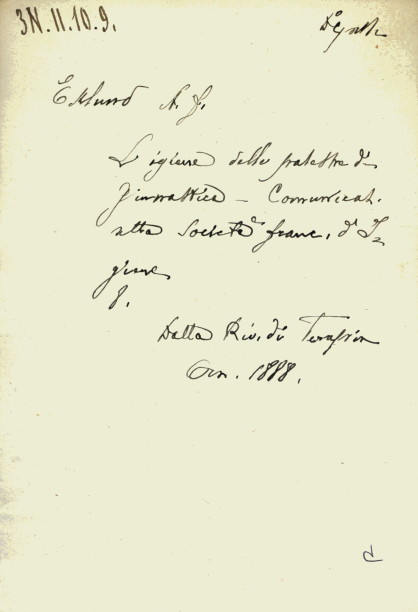 3N.11.10.9.
Eklund A. F.
L'igiene delle palestre di
ginnastica - Comunicat.
alla Società franc. d'I-
giene
8.
Dalla Riv. di
1888.